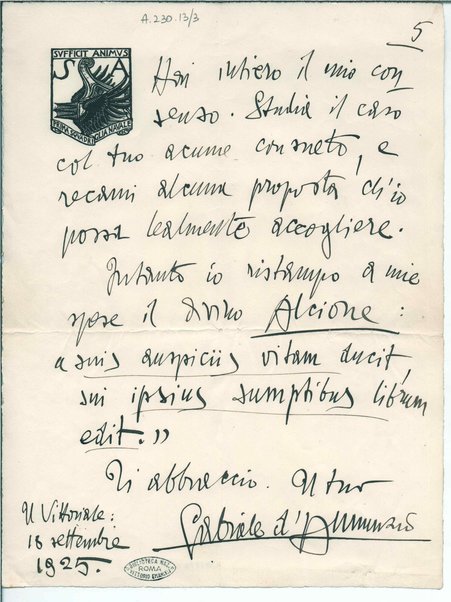 A.230.13/3
5
SVFFICIT ANIMVS
S A
PRIMA SQVADRIGLIA NAVALE
Hai intiero il mio con
senso. Studia il caso
col tuo acume consueto, e
recami alcuna proposta ch'io
possa lealmente accogliere.
Intanto io ristampo a mie
spese il divino Alcione:
a suis auspiciis vitam ducit,
sui ipsius sumptibus librum
edit."
Ti abbraccio. Il tuo
Gabriele d'Annunzio
Il Vittoriale:
18 settembre
1925.
BIBLIOTECA NAZ
ROMA
VITTORIO EMANUELE